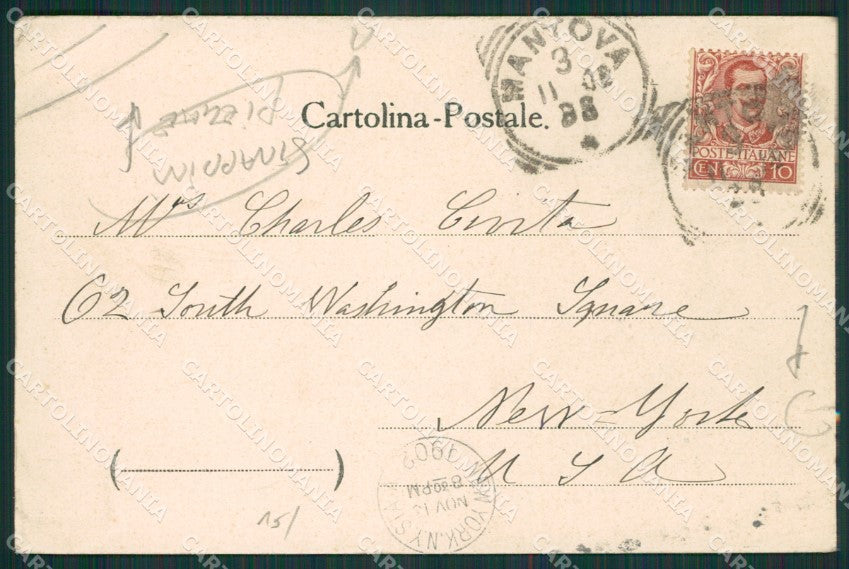 MANTOVA
3
11 02
8S
POSTE ITALIANE
CENT 10
Cartolina-Postale.
Mrs Charles Civita
62 South Washington Square
New-York
U S A
( )
NEW YORK, N.Y. STA
NOV 13
830PM
1902
15/
CARTOLINOMANIA